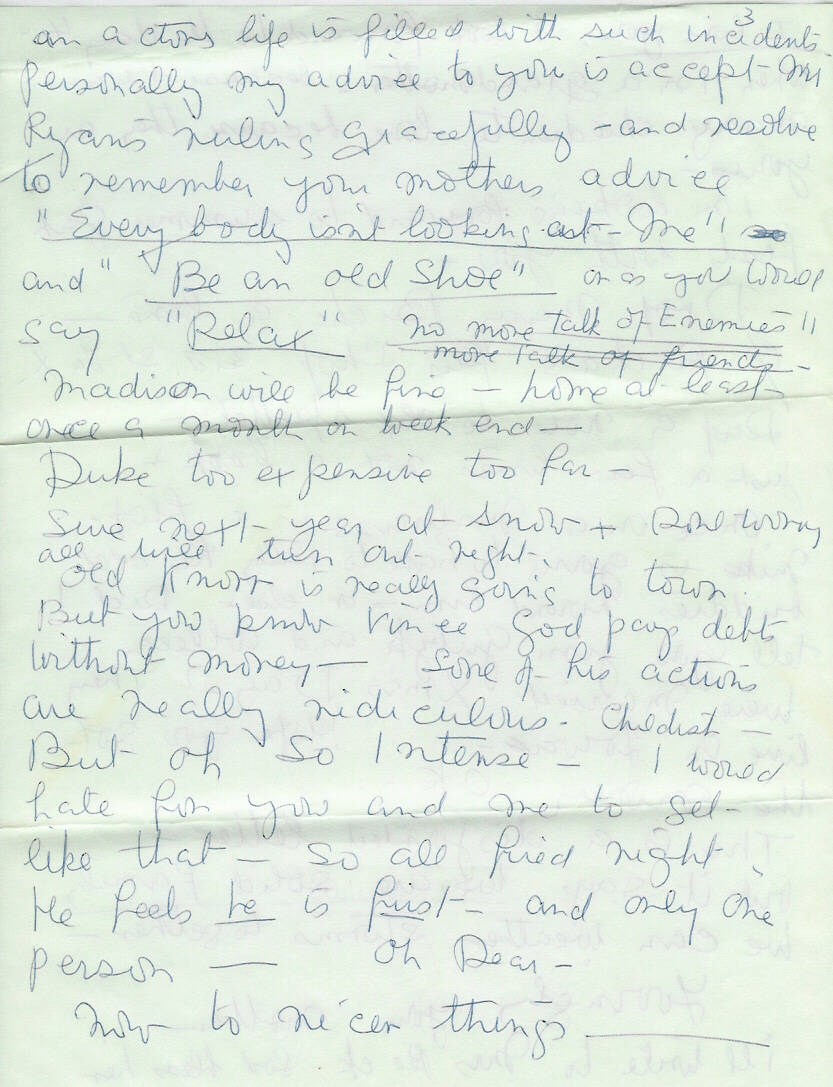 3
an actors life is filled with such incidents.
Personally my advice to you is accept Mr
Ryans ruling gracefully - and resolve
to remember your mothers advice
"Every body isn't looking at - Me"
and "Be an old Shoe" or as you would
say "Relax" no more talk of Enemies"
more talk of friends -
Madison will be fine - home at least
once a month on week end -
Duke too expensive too far -
Sure next year at Snow +
all will turn out right -
old Knorr is really going to town.
But you know Vince God pays debt
without money - Some of his actions
are really ridiculous - Childist -
But oh So Intense - I would
hate for you and me to get
like that - so all fired right
He feels he is first - and only one
person - Oh Dear -
now to nicer things